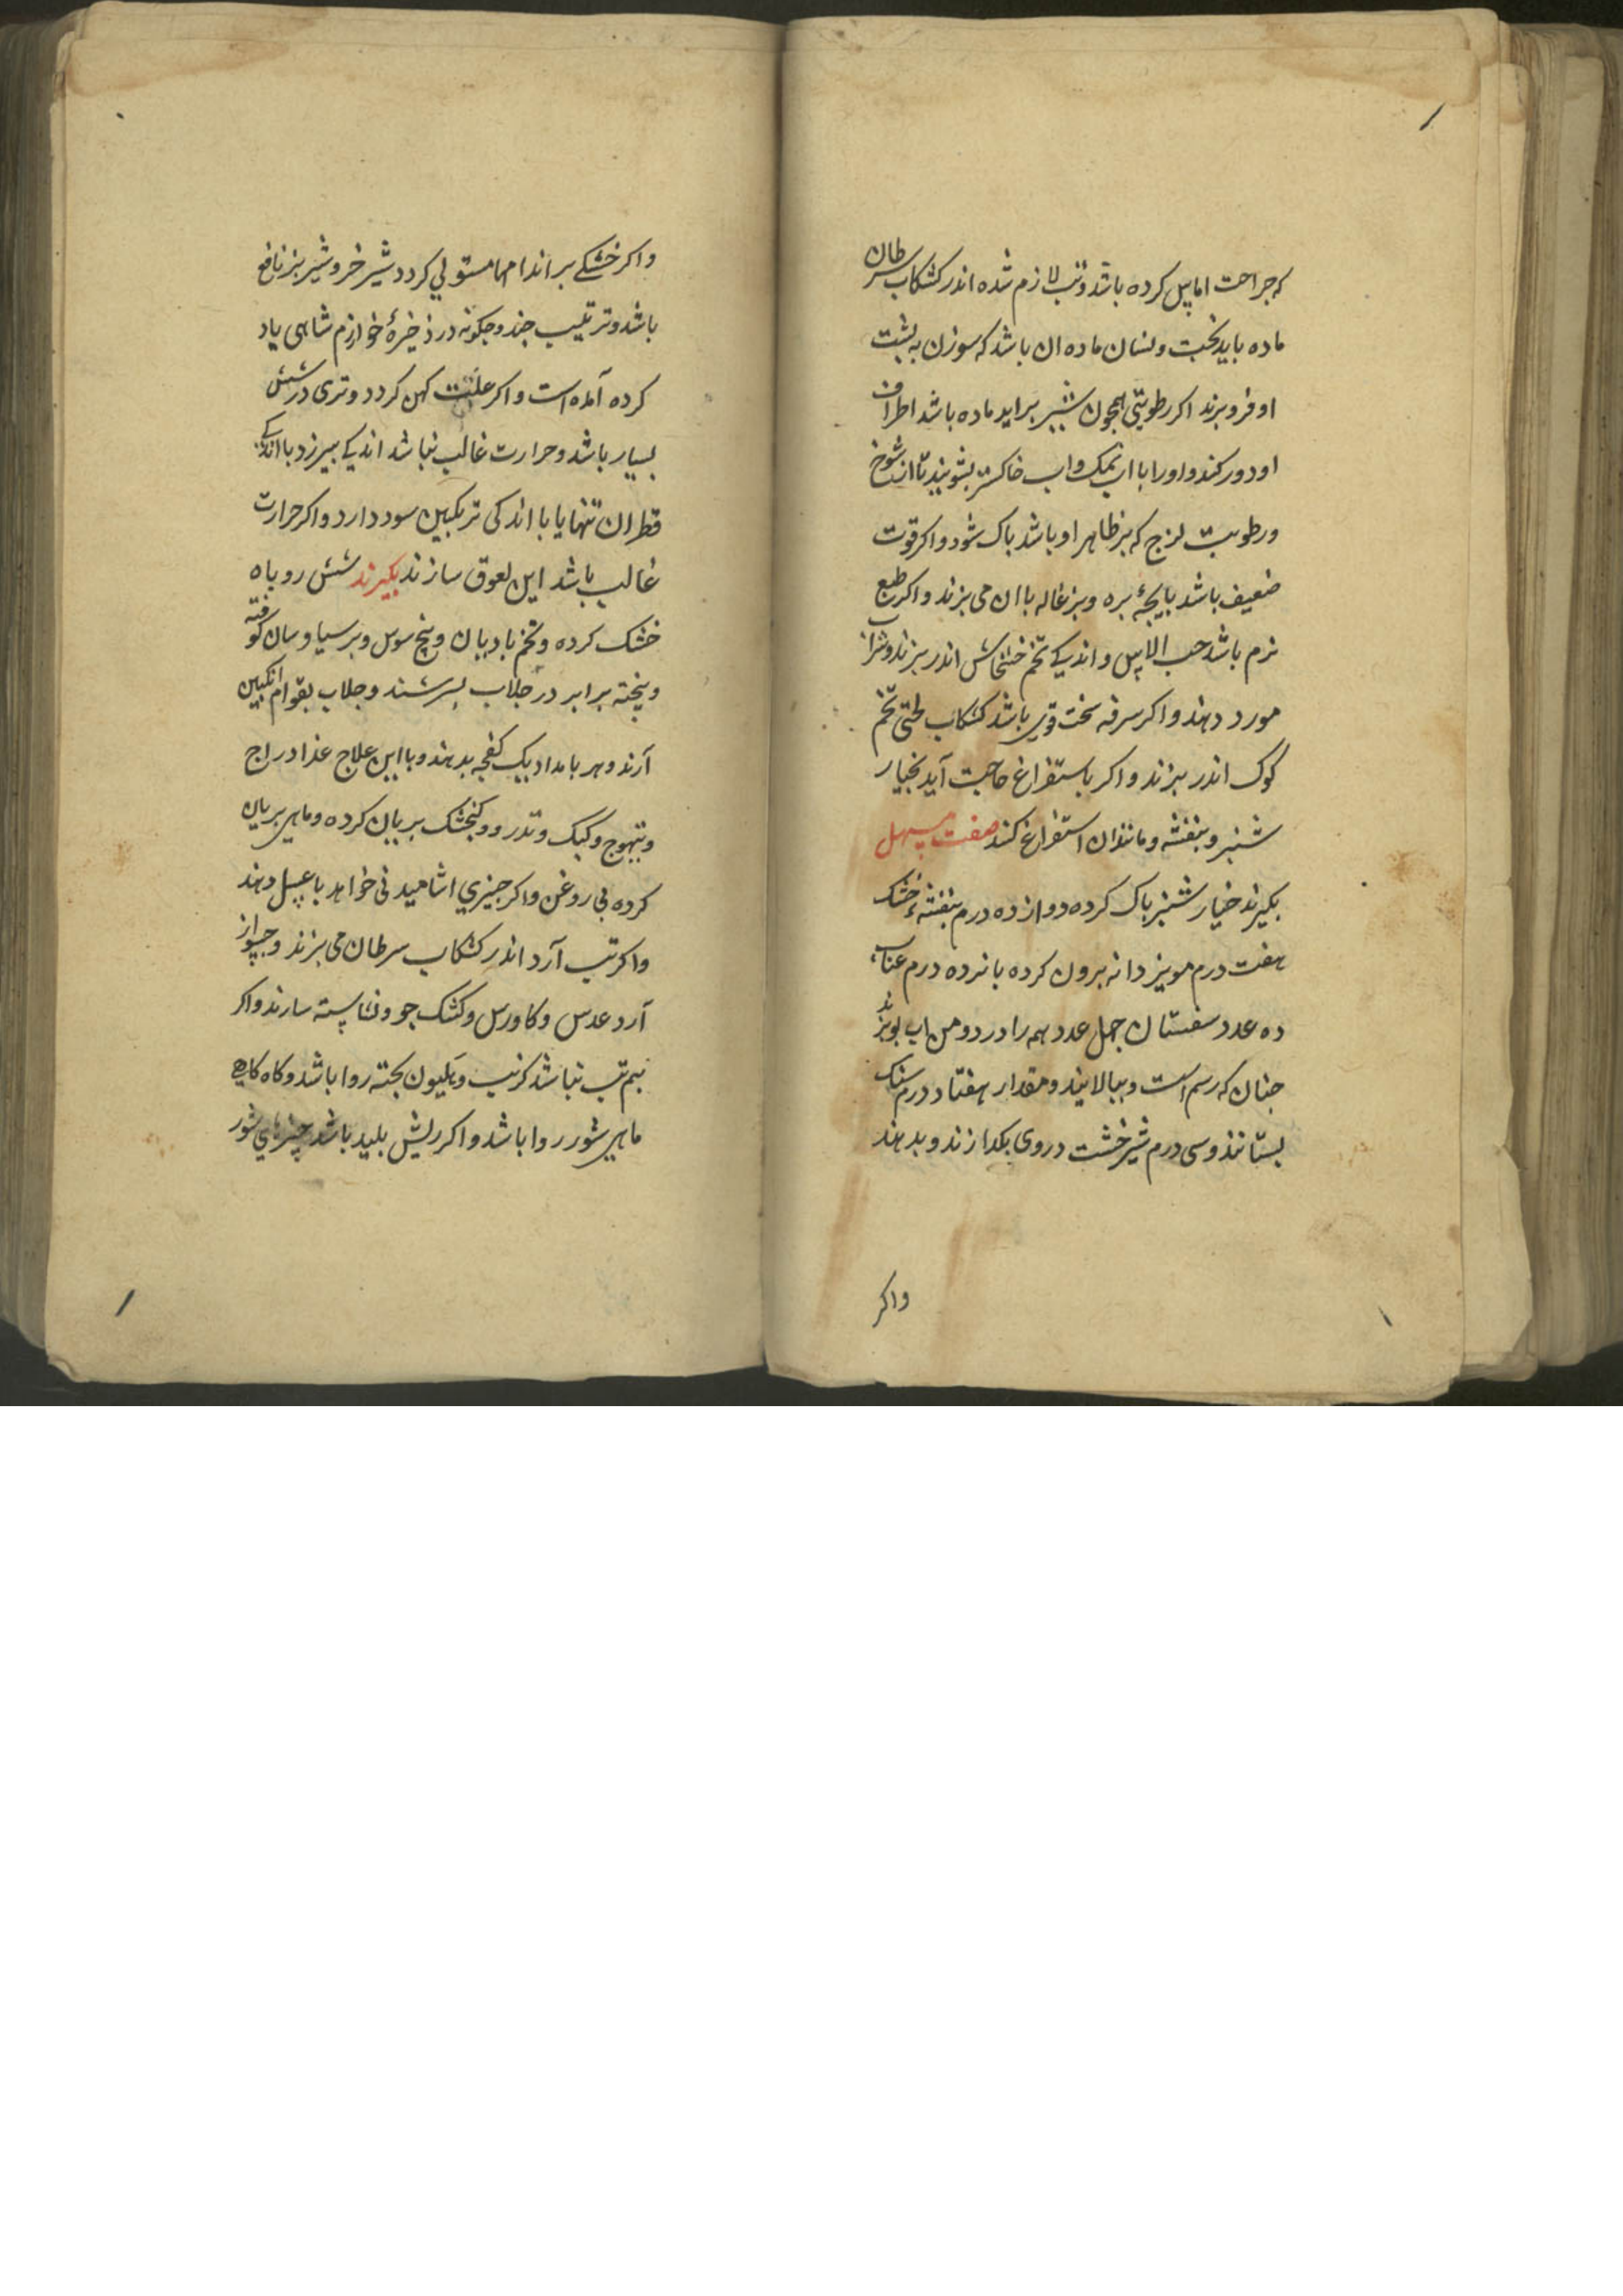 که جراحت اماس کرده باشد و تب لازم شده اندر کشکاب سرطان
ماده باید پخت و نشان ماده ان باشد که سوزن به پشت
او فرو برند اکر رطوبتی همچون شیر براید ماده باشد اطراف
او دور کنند و او را با اب نمک و اب خاکستر بشویند تا از شوخ
و رطوبت لزج که بر ظاهر او باشد باک شود و اکر قوت
ضعیف باشد بایچهٔ بره و بزغاله با ان می بزند و اکر طبع
نرم باشد حب الاس و اندکی تخم خشخاش اندر بزند و شراب
مورد دهند و اکر سرفه سخت قوی باشد کشکاب لختی تخم
کوک اندر بزند و اکر باستفراغ حاجت آید بخیار
شنبر و بنفشه و مانند ان استفراغ کنند صفت مسهل
بکیرند خیار شنبر باک کرده دوازده درم بنفشهٔ خشک
هفت درم مویز دانه برون کرده بانزده درم عناب
ده عدد سفستان چهل عدد همه را در دو من اب بو بزند
جنان که رسم است و ببالایند و مقدار هفتاد درم سنک
بستانند و سی درم شیرخشت در وی بکدازند و بدهند
واکر
واکر خشکی بر اندامها مستولي کردد شیر خر و شیر بز نافع
باشد و ترتیب جند و جکونه در ذخیرهٔ خوارزم شاهی یاد
کرده آمده است و اکر علت کهن کردد و تری در شش
بسیار باشد و حرارت غالب نباشد اندکی بیرزد با اندکی
قطران تنها یا با اندکی ترنکبین سود دارد و اکر حرارت
غالب باشد این لعوق سازند بکیرند شش روباه
خشک کرده و تخم بادیان و بیخ سوس و برسیاوسان کوفته
و بیخته برابر در جلاب بسرشند و جلاب بقوام انکبین
آرند و هر بامداد یک کفجه بدهند و با این علاج غذا دراج
و تیهوج و کبک و تدرو و کنجشک بریان کرده و ماهی بریان
کرده بی روغن و اکر جیزي اشامیدنی خواهد با عسل دهند
و اکر تب آرد اندر کشکاب سرطان می بزند و حسو از
آرد عدس و کاورس و کشک جو و نشاسته سازند و اکر
بیم تب نباشد کرنب و هلیون بخته روا باشد و کاه کاهی
ماهی شور روا باشد و اکر ریش بلید باشد چیزهاي شور